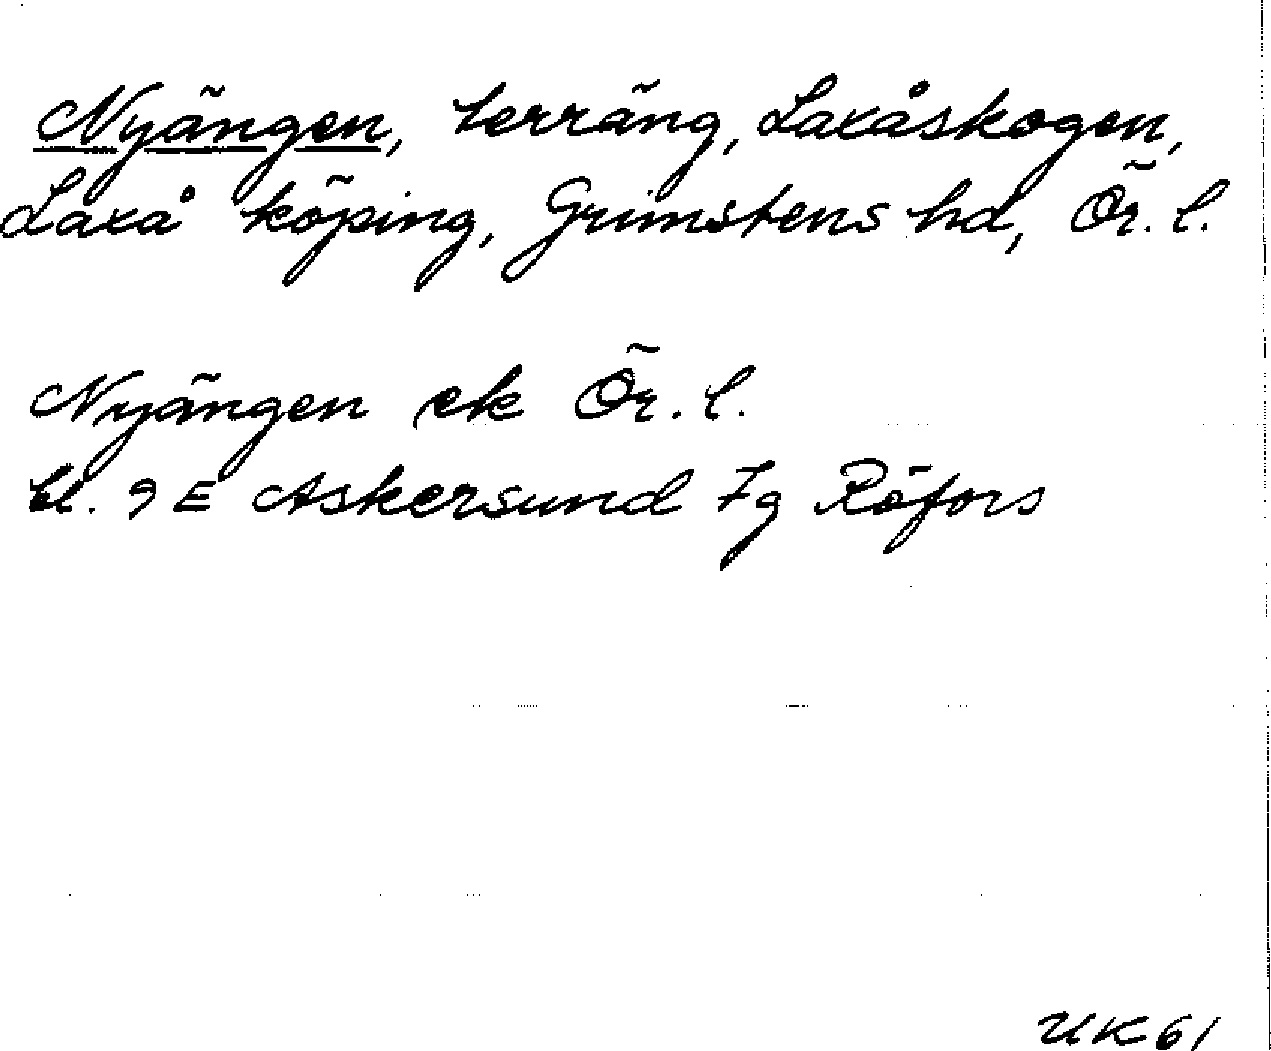 Nyängen, terräng, Laxåskogen,
Laxå köping, Grimstens hd, Ör. l.
Nyängen ek Ör. l.
bl. 9 E Askersund 7g Röfors
UK 61